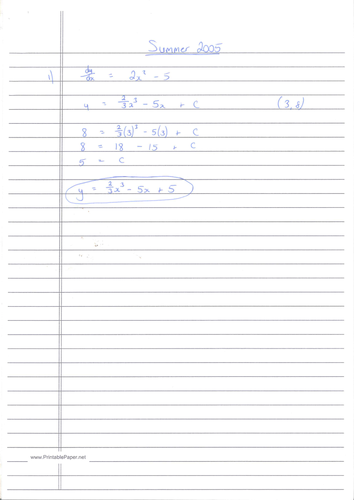 Summer 2005
1) dy/dx = 2x² - 5
y = 2/3x³ - 5x + C (3, 8)
8 = 2/3(3)³ - 5(3) + C
8 = 18 - 15 + C
5 = C
y = 2/3x³ - 5x + 5
www.PrintablePaper.net